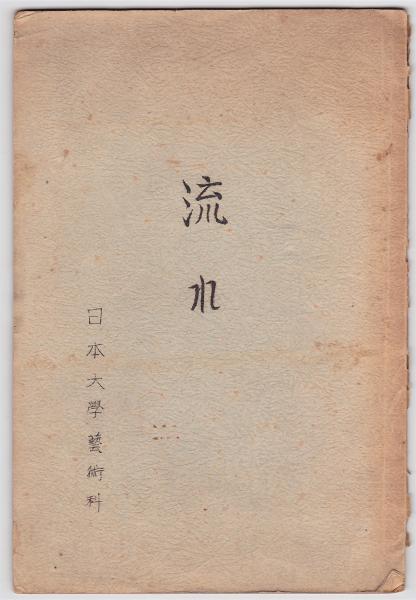 流水
日本大學藝術科